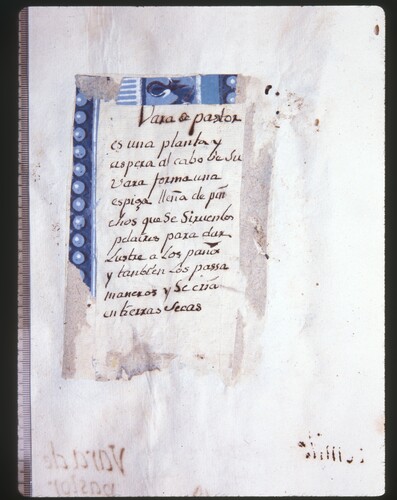 Vara de pastor
es una planta y
aspera al cabo de su
vara forma una
espiga lleña de pin
chos que se sirven los
pelaires para dar
Lustre a Los paños
y tambien Los passa
maneros y se cria
en tierras secas
Vara de
pastor